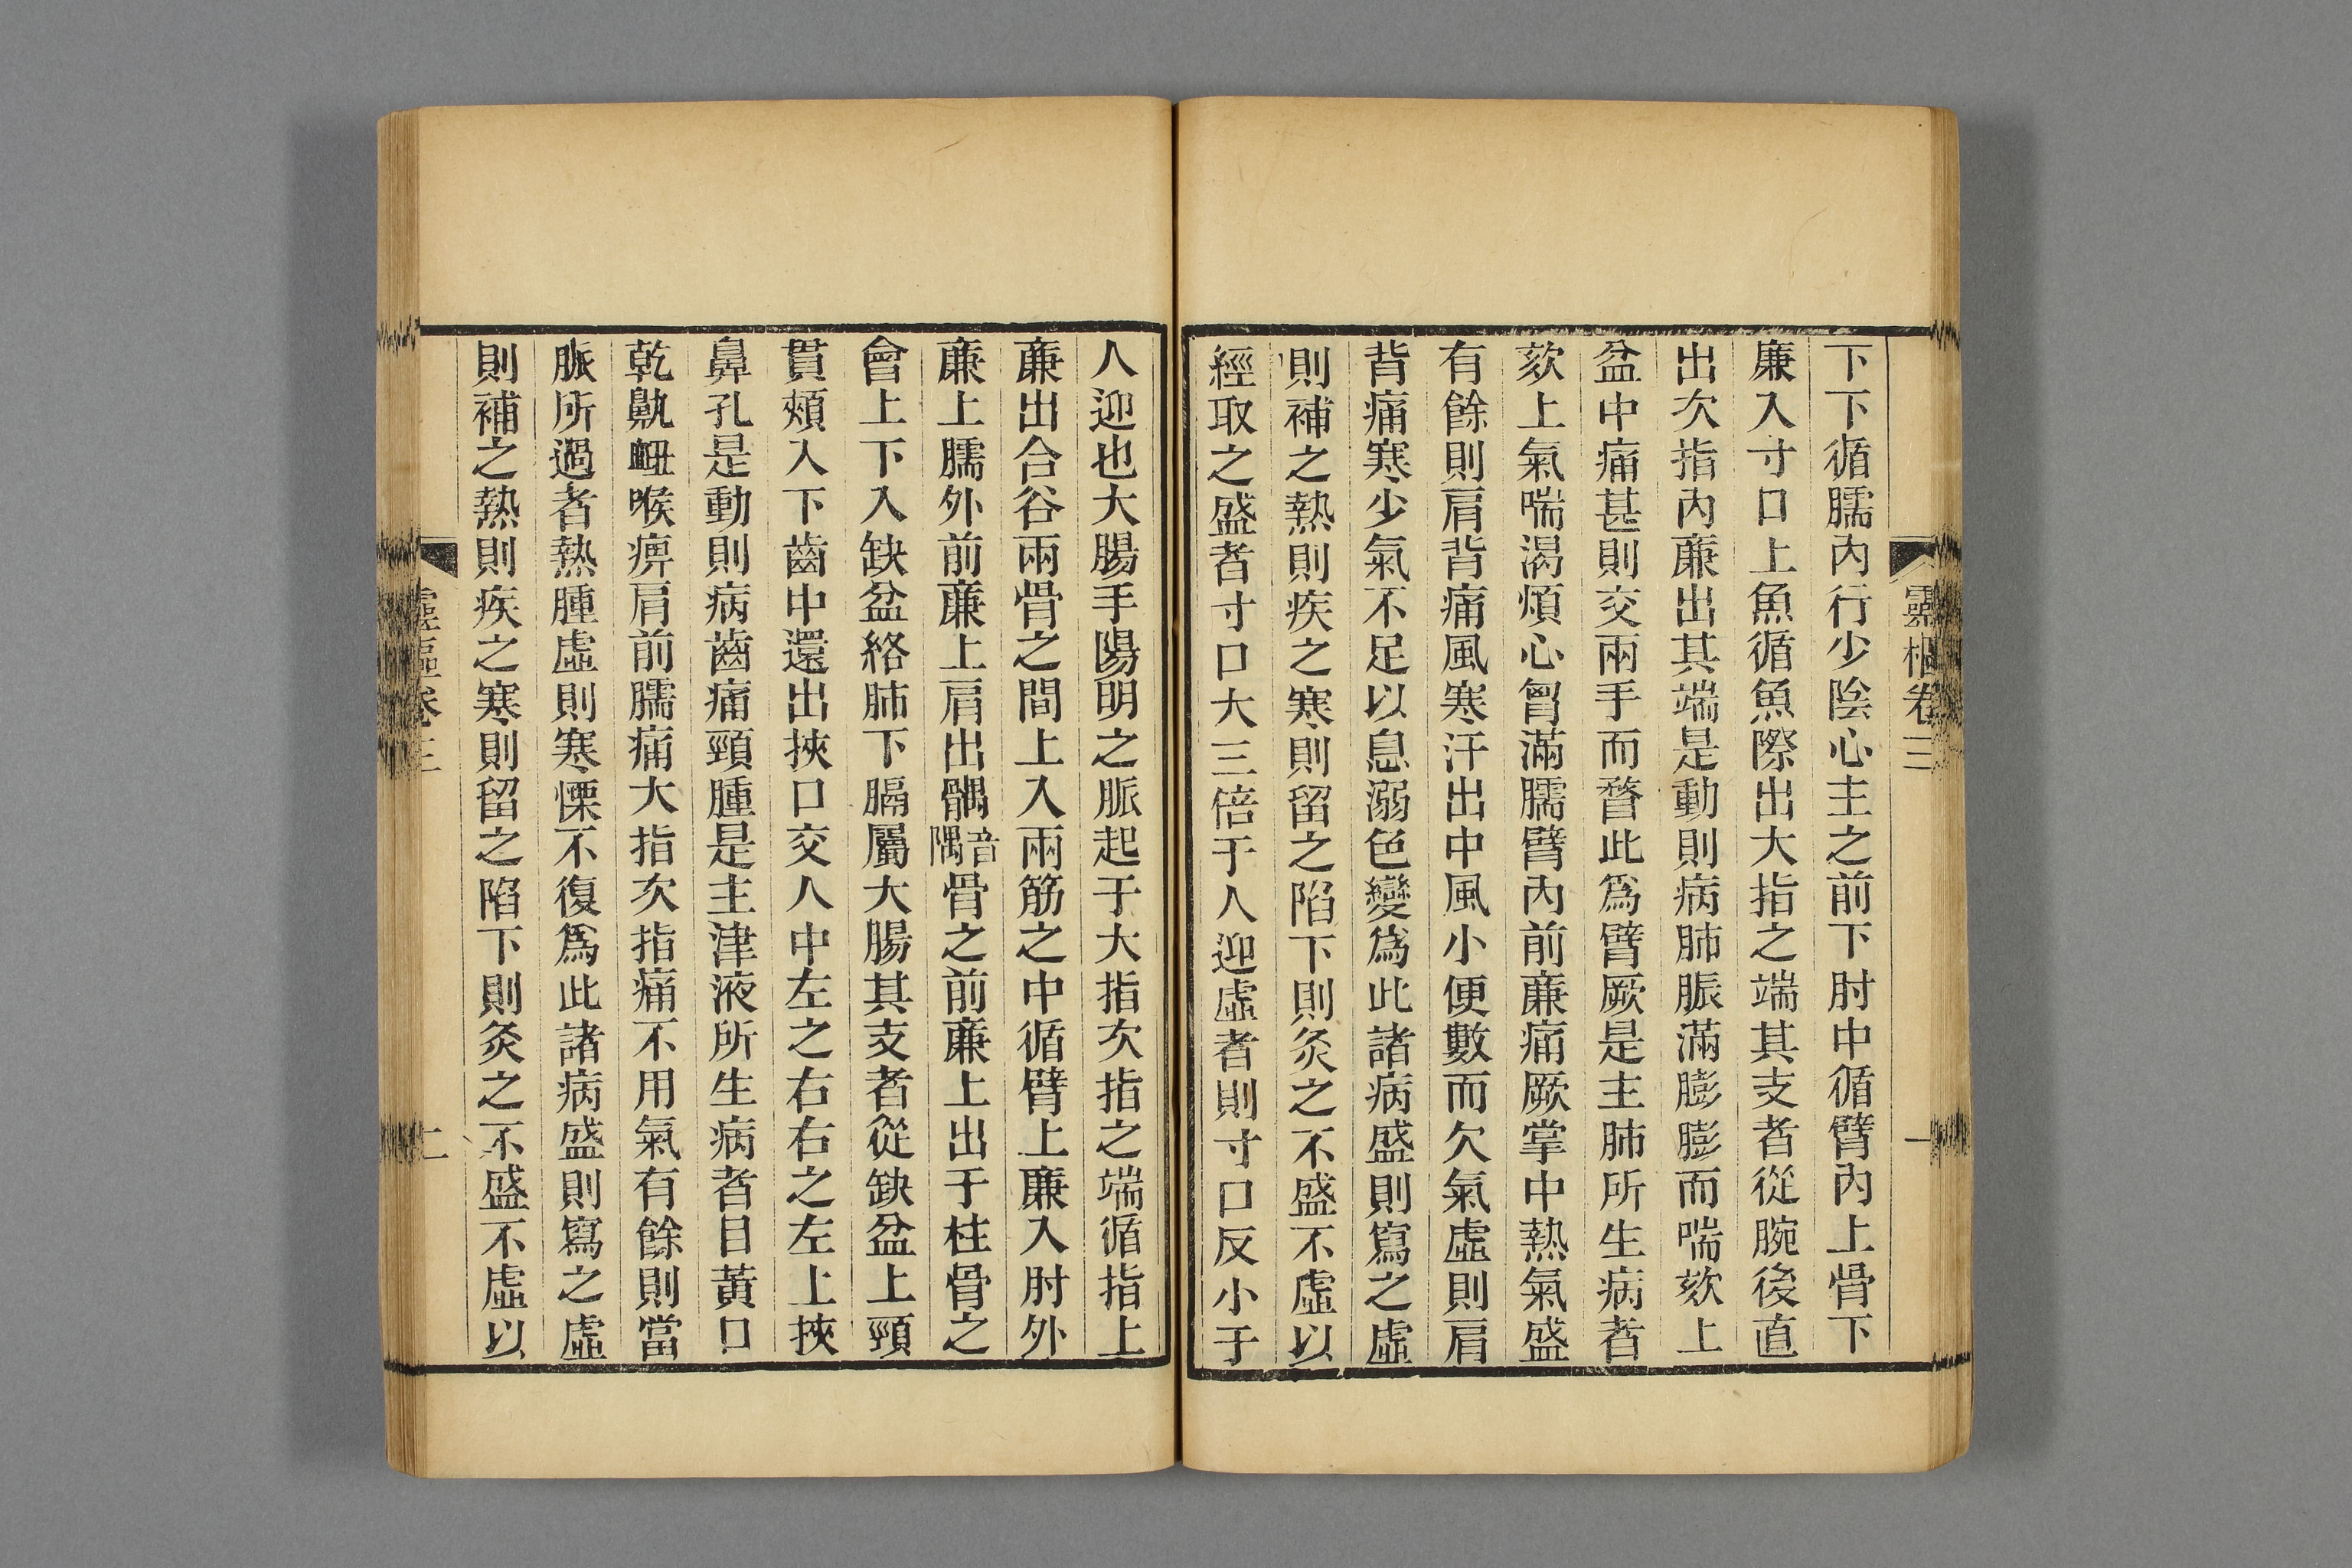 靈樞卷三
一
下下循臑內行少陰心主之前下肘中循臂內上骨下
廉入寸口上魚循魚際出大指之端其支者從腕後直
出次指內廉出其端是動則病肺脹滿膨膨而喘欬上
盆中痛甚則交兩手而瞀此爲臂厥是主肺所生病者
欬上氣喘渴煩心胷滿臑臂內前廉痛厥掌中熱氣盛
有餘則肩背痛風寒汗出中風小便數而欠氣虛則肩
背痛寒少氣不足以息溺色變爲此諸病盛則寫之虛
則補之熱則疾之寒則留之陷下則灸之不盛不虛以
經取之盛者寸口大三倍于人迎虛者則寸口反小于
人迎也大腸手陽明之脈起于大指次指之端循指上
廉出合谷兩骨之間上入兩筋之中循臂上廉入肘外
廉上臑外前廉上肩出髃音隅骨之前廉上出于柱骨之
會上下入缺盆絡肺下膈屬大腸其支者從缺盆上頸
貫頰入下齒中還出挾口交人中左之右右之左上挾
鼻孔是動則病齒痛頸腫是主津液所生病者目黃口
乾鼽衄喉痹肩前臑痛大指次指痛不用氣有餘則當
脈所過者熱腫虛則寒慄不復爲此諸病盛則寫之虛
則補之熱則疾之寒則留之陷下則灸之不盛不虛以
靈樞卷三